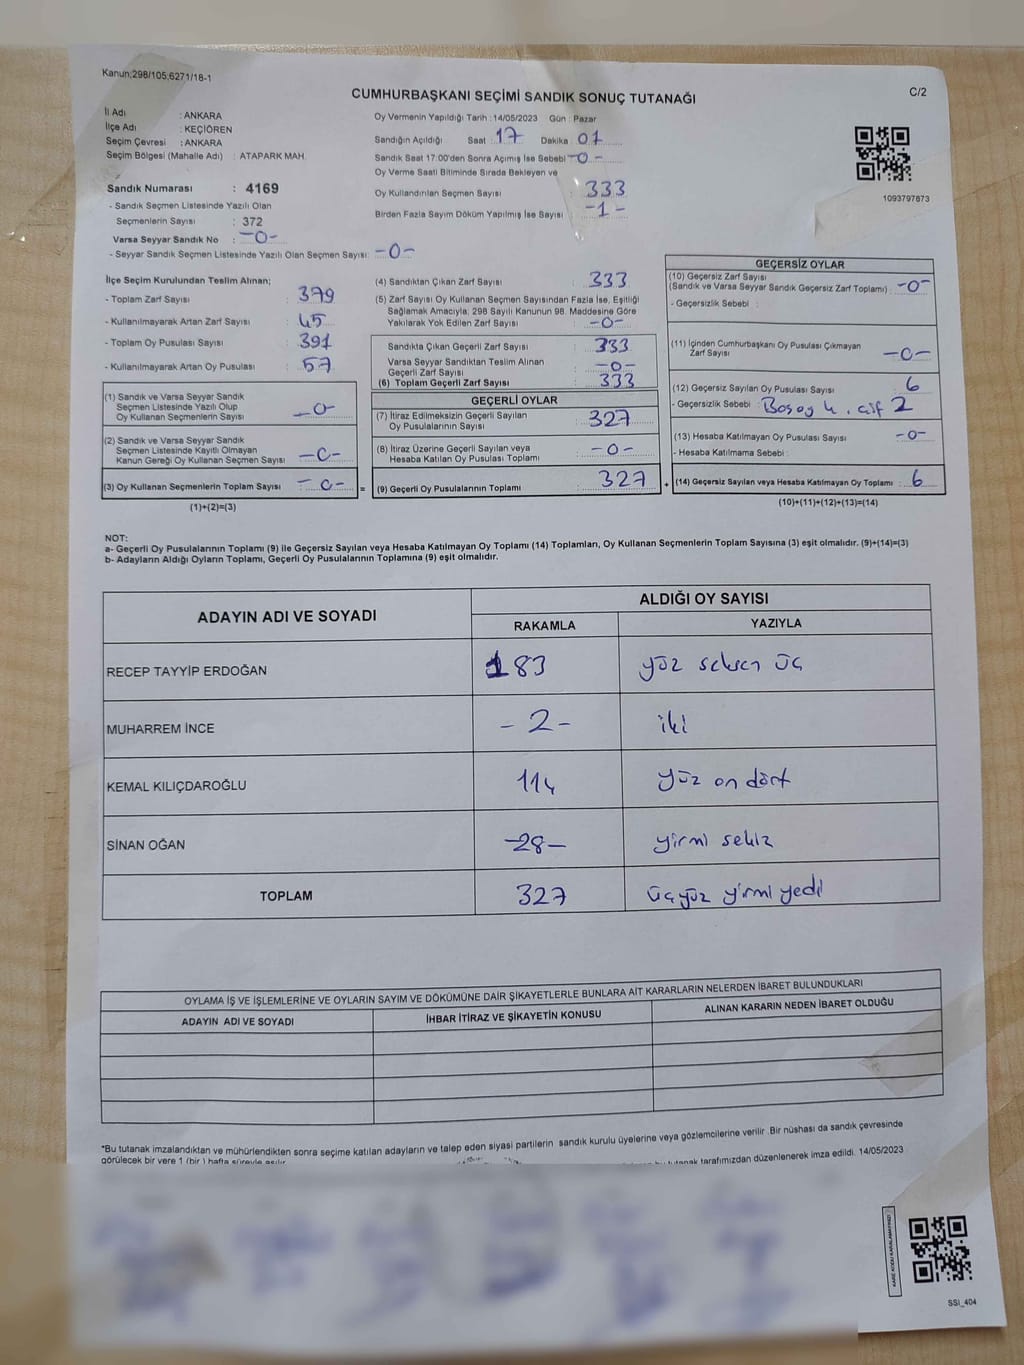 Kanun;298/105;6271/18-1
C/2
CUMHURBAŞKANI SEÇİMİ SANDIK SONUÇ TUTANAĞI
İl Adı : ANKARA
İlçe Adı : KEÇİÖREN
Seçim Çevresi : ANKARA
Seçim Bölgesi (Mahalle Adı) : ATAPARK MAH.
Sandık Numarası : 4169
- Sandık Seçmen Listesinde Yazılı Olan
Seçmenlerin Sayısı : 372
Varsa Seyyar Sandık No : -0-
- Seyyar Sandık Seçmen Listesinde Yazılı Olan Seçmen Sayısı: -0-
Oy Vermenin Yapıldığı Tarih : 14/05/2023 Gün : Pazar
Sandığın Açıldığı Saat : 17 Dakika 01
Sandık Saat 17:00'den Sonra Açımış İse Sebebi -0-
Oy Verme Saati Bitiminde Sırada Bekleyen ve
Oy Kullandırılan Seçmen Sayısı : 333
Birden Fazla Sayım Döküm Yapılmış İse Sayısı : -1-
1093797873
İlçe Seçim Kurulundan Teslim Alınan;
- Toplam Zarf Sayısı : 379
- Kullanılmayarak Artan Zarf Sayısı : 45
- Toplam Oy Pusulası Sayısı : 391
- Kullanılmayarak Artan Oy Pusulası : 57
(1) Sandık ve Varsa Seyyar Sandık
Seçmen Listesinde Yazılı Olup
Oy Kullanan Seçmenlerin Sayısı : -0-
(2) Sandık ve Varsa Seyyar Sandık
Seçmen Listesinde Kayıtlı Olmayan
Kanun Gereği Oy Kullanan Seçmen Sayısı : -0-
(3) Oy Kullanan Seçmenlerin Toplam Sayısı : -0- =
(1)+(2)=(3)
(4) Sandıktan Çıkan Zarf Sayısı : 333
(5) Zarf Sayısı Oy Kullanan Seçmen Sayısından Fazla İse, Eşitliği
Sağlamak Amacıyla; 298 Sayılı Kanunun 98. Maddesine Göre
Yakılarak Yok Edilen Zarf Sayısı : -0-
Sandıkta Çıkan Geçerli Zarf Sayısı : 333
Varsa Seyyar Sandıktan Teslim Alınan
Geçerli Zarf Sayısı : -0-
(6) Toplam Geçerli Zarf Sayısı : 333
GEÇERLİ OYLAR
(7) İtiraz Edilmeksizin Geçerli Sayılan
Oy Pusulalarının Sayısı : 327
(8) İtiraz Üzerine Geçerli Sayılan veya
Hesaba Katılan Oy Pusulası Toplamı : -0-
(9) Geçerli Oy Pusulalarının Toplamı : 327 +
GEÇERSİZ OYLAR
(10) Geçersiz Zarf Sayısı
(Sandık ve Varsa Seyyar Sandık Geçersiz Zarf Toplamı) : -0-
- Geçersizlik Sebebi :
(11) İçinden Cumhurbaşkanı Oy Pusulası Çıkmayan
Zarf Sayısı : -0-
(12) Geçersiz Sayılan Oy Pusulası Sayısı : 6
- Geçersizlik Sebebi : 2
(13) Hesaba Katılmayan Oy Pusulası Sayısı : -0-
- Hesaba Katılmama Sebebi :
(14) Geçersiz Sayılan veya Hesaba Katılmayan Oy Toplamı : 6
(10)+(11)+(12)+(13)=(14)
NOT:
a- Geçerli Oy Pusulalarının Toplamı (9) ile Geçersiz Sayılan veya Hesaba Katılmayan Oy Toplamı (14) Toplamları, Oy Kullanan Seçmenlerin Toplam Sayısına (3) eşit olmalıdır. (9)+(14)=(3)
b- Adayların Aldığı Oyların Toplamı, Geçerli Oy Pusulalarının Toplamına (9) eşit olmalıdır.
ADAYIN ADI VE SOYADI
ALDIĞI OY SAYISI
RAKAMLA YAZIYLA
RECEP TAYYİP ERDOĞAN 183 yüz seksen üç
MUHARREM İNCE -2- iki
KEMAL KILIÇDAROĞLU 114 yüz on dört
SİNAN OĞAN -28- yirmi sekiz
TOPLAM 327 üçyüz yirmi yedi
OYLAMA İŞ VE İŞLEMLERİNE VE OYLARIN SAYIM VE DÖKÜMÜNE DAİR ŞİKAYETLERLE BUNLARA AİT KARARLARIN NELERDEN İBARET BULUNDUKLARI
ADAYIN ADI VE SOYADI İHBAR İTİRAZ VE ŞİKAYETİN KONUSU ALINAN KARARIN NEDEN İBARET OLDUĞU
*Bu tutanak imzalandıktan ve mühürlendikten sonra seçime katılan adayların ve talep eden siyasi partilerin sandık kurulu üyelerine veya gözlemcilerine verilir .Bir nüshası da sandık çevresinde
görülecek bir yere 1 (bir ) hafta süreyle asılır. tutanak tarafımızdan düzenlenerek imza edildi. 14/05/2023
KARE KODU KARALAMAYINIZ!
SSI_404